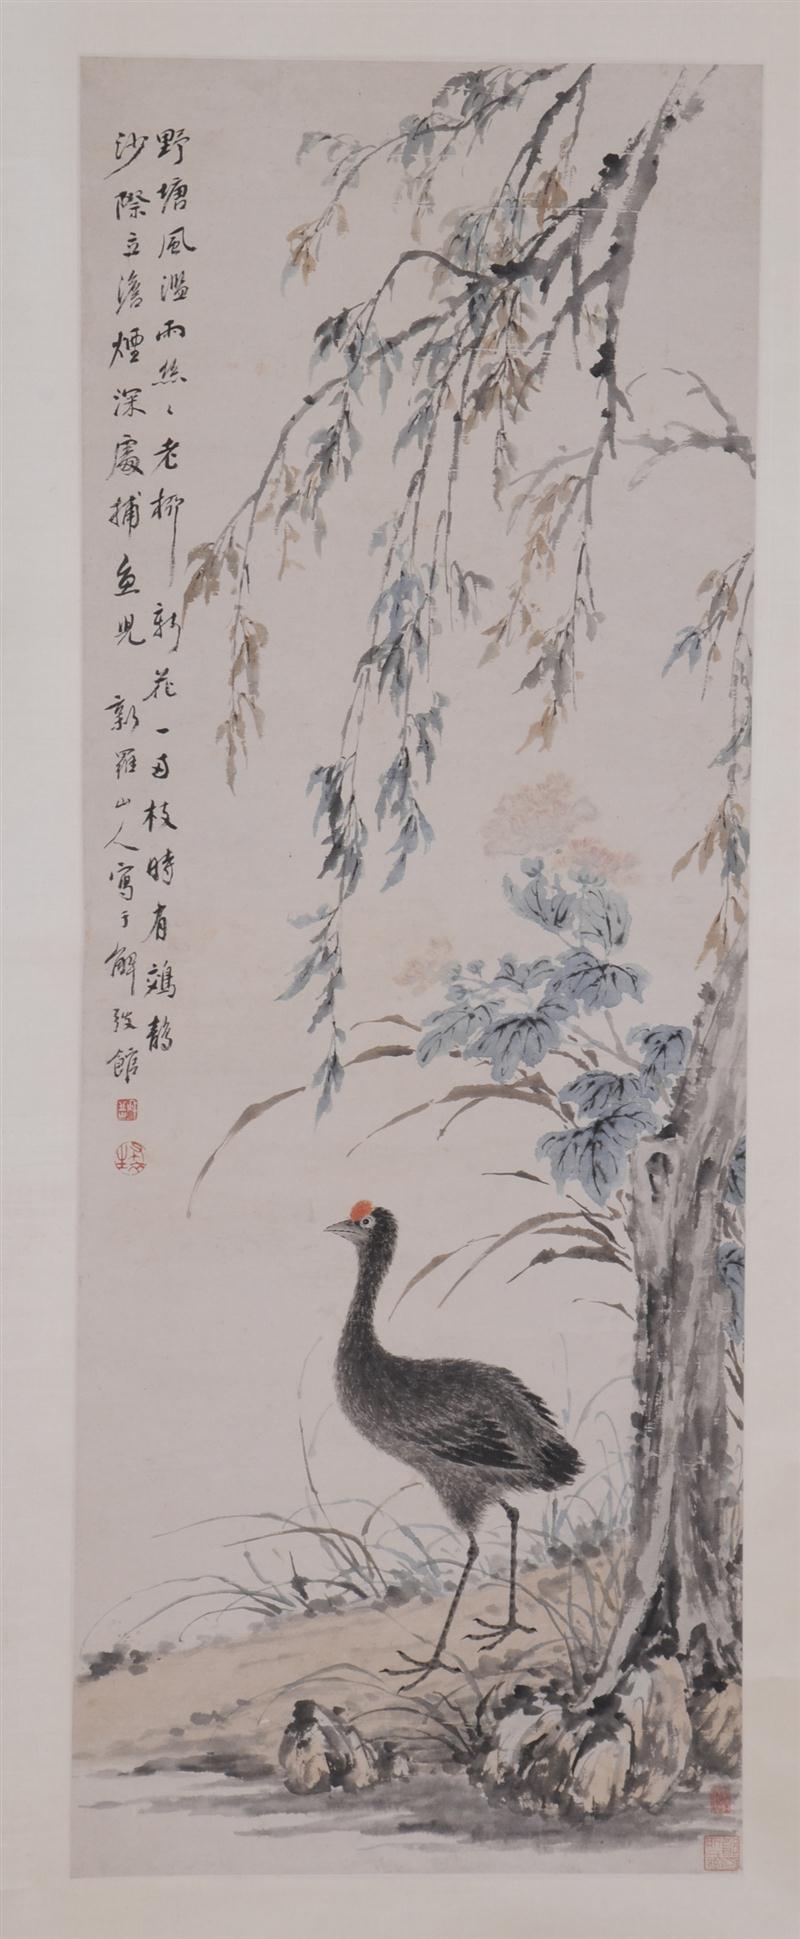 野塘風濕雨絲〻老柳新花一兩枝時有鵁鶄
沙際立澹煙深處捕魚兒　新羅山人寫于解弢館